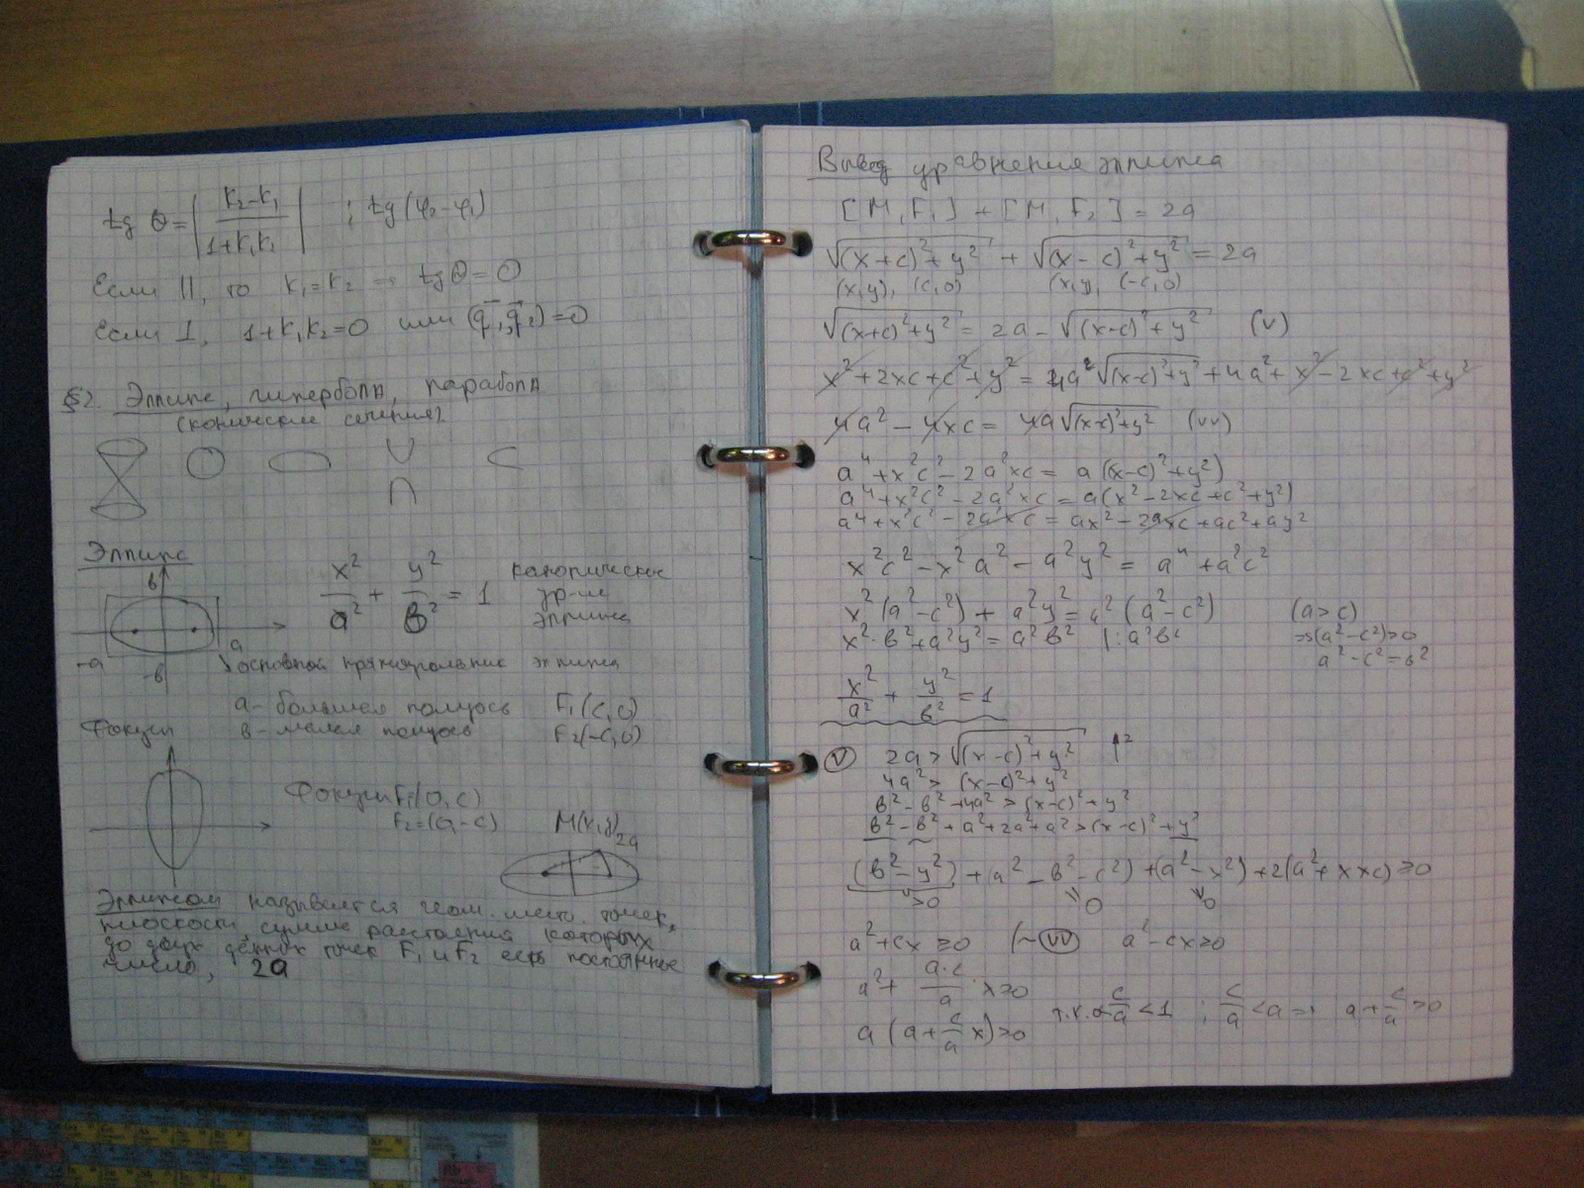 tg θ = |(k₂-k₁)/(1+k₁k₂)| ; tg(φ₂-φ₁)
Если ||, то k₁=k₂ tgθ=0
Если ⊥, 1+k₁k₂=0 или (q̄₁,q̄₂)=0
§2. Эллипс, гипербола, парабола
(конические сечения)
Эллипс
x²/a² + y²/b² = 1 каноническое
ур-ие
эллипса
b
a
-a
-b
основной прямоугольник эллипса
a - большая полуось F₁(c,0)
Фокусы b - малая полуось F₂(-c,0)
Фокусы F₁(0,c)
F₂=(0,-c) M(x,y)
2a
Эллипсом называется геом. место точек,
плоскости, сумма расстояния которых
до двух данных точек F₁ и F₂ есть постоянное
число, 2a
Вывод уравнения эллипса
[M,F₁] + [M,F₂] = 2a
√((x+c)²+y²) + √((x-c)²+y²) = 2a
(x,y), (c,0) (x,y, (-c,0)
√((x+c)²+y²) = 2a - √((x-c)²+y²) (v)
x²+2xc+c²+y² = 4a²√((x-c)²+y²)+4a²+x²-2xc+c²+y²
4a² - 4xc = 4a√((x-c)²+y²) (vv)
a⁴+x²c²-2a²xc = a((x-c)²+y²)
a⁴+x²c²-2a²xc = a(x²-2xc+c²+y²)
a⁴+x²c²-2a²xc = ax²-2axc+ac²+ay²
x²c²-x²a²-a²y² = a⁴+a²c²
x²(a²-c²) + a²y² = a²(a²-c²) (a>c)
x²·b²+a²y² = a²b² |:a²b² =>(a²-c²)>0
a²-c²=b²
x²/a² + y²/b² = 1
(V) 2a > √((x-c)²+y²) ↑²
4a² > (x-c)²+y²
b²-b²+4a² > (x-c)²+y²
b²-b²+a²+2a²+a² > (x-c)²+y²
(b²-y²)+(a²-b²-c²)+(a²-x²)+2(a²+xxc) ≥ 0
>0 0 0
a²+cx ≥ 0 (~(VV) a²-cx≥0
a² + (a·c)/a · x>0
a(a+(c/a)x)>0 т.к. c/a<1 ; c/a<a => a+c/a>0